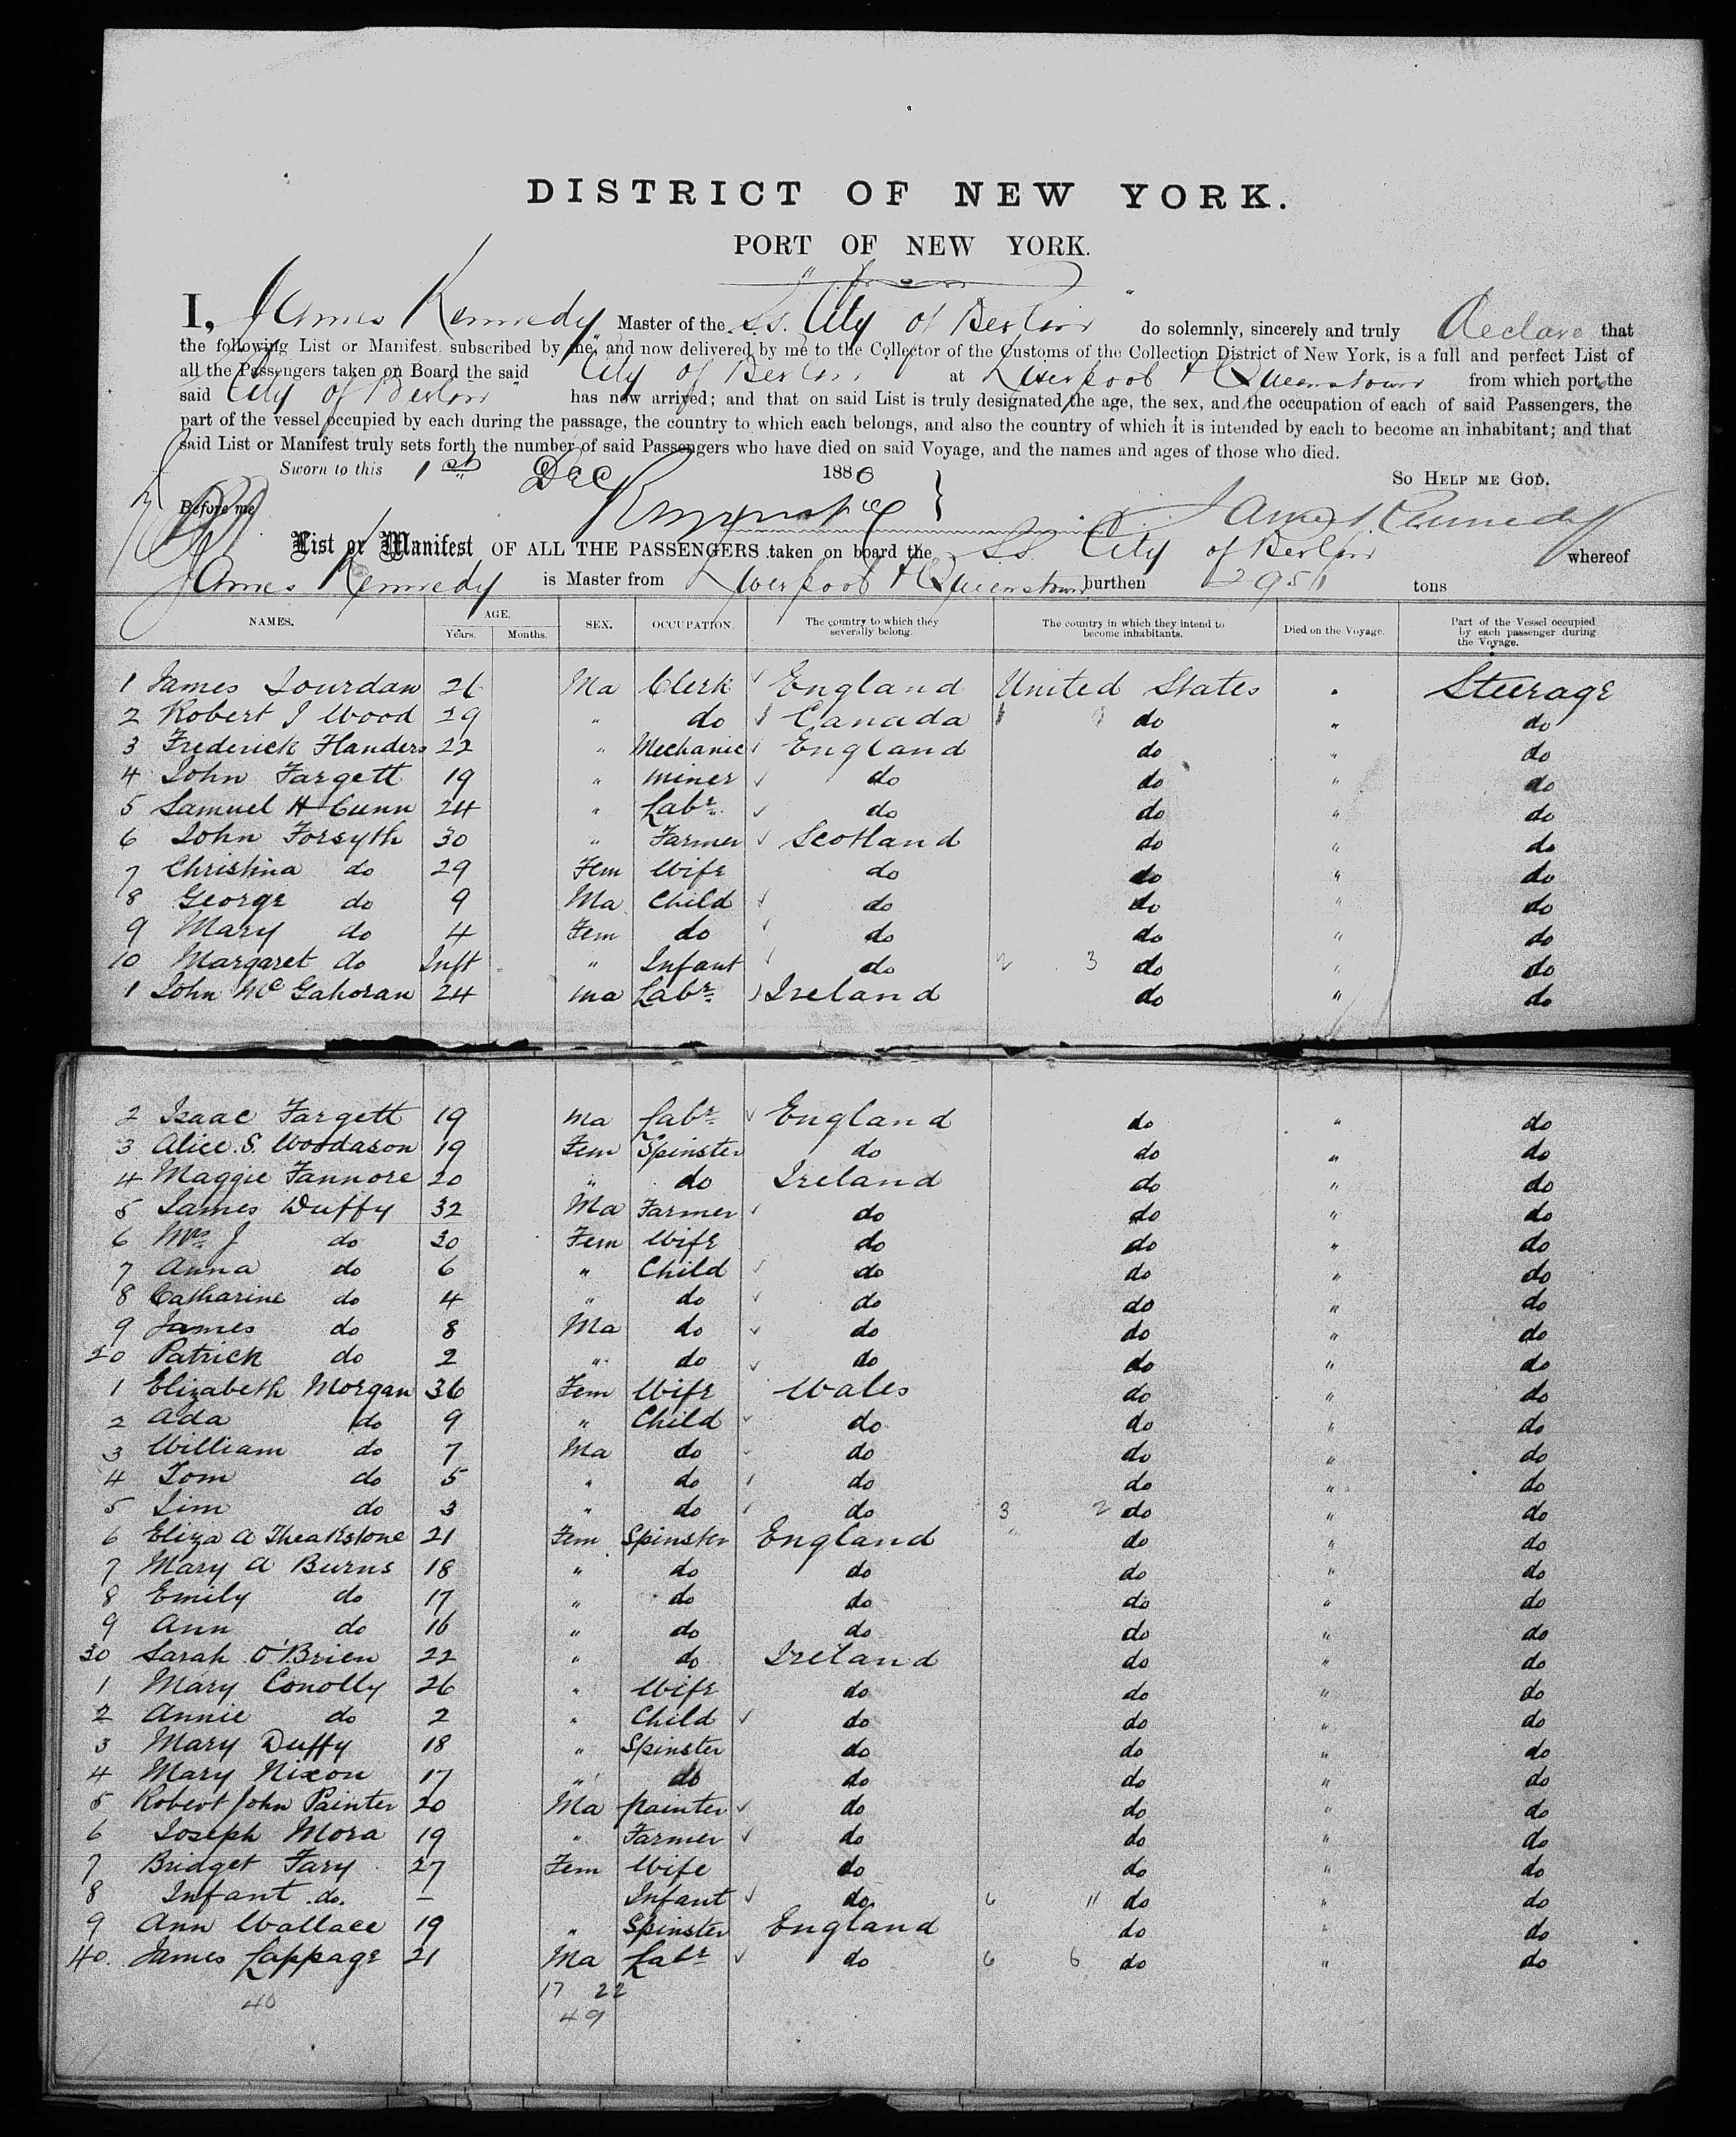 DISTRICT OF NEW YORK.
PORT OF NEW YORK.
I, James Kennedy Master of the Ss. "City of Berlin" do solemnly, sincerely and truly declare that
the following List or Manifest, subscribed by me, and now delivered by me to the Collector of the Customs of the Collection District of New York, is a full and perfect List of
all the Passengers taken on Board the said City of Berlin at Liverpool & Queenstown from which port the
said City of Berlin has now arrived; and that on said List is truly designated the age, the sex, and the occupation of each of said Passengers, the
part of the vessel occupied by each during the passage, the country to which each belongs, and also the country of which it is intended by each to become an inhabitant; and that
said List or Manifest truly sets forth the number of said Passengers who have died on said Voyage, and the names and ages of those who died.
Sworn to this 1st Dec 1880 So HELP ME GOD.
Before me James Kennedy
List or Manifest OF ALL THE PASSENGERS taken on board the Ss City of Berlin whereof
James Kennedy is Master from Liverpool & Queenstown burthen 2951 tons
NAMES. AGE. Years. Months. SEX. OCCUPATION. The country to which they severally belong. The country in which they intend to become inhabitants. Died on the Voyage. Part of the Vessel occupied by each passenger during the Voyage.
1 James Jourdan 26 Ma Clerk England United States " Steerage
2 Robert J Wood 29 " do Canada do " do
3 Frederick Flanders 22 " Mechanic England do " do
4 John Fargett 19 " miner do do " do
5 Samuel H Cunn 24 " Labr do do " do
6 John Forsyth 30 " Farmer Scotland do " do
7 Christina do 29 Fem Wife do do " do
8 George do 9 Ma Child do do " do
9 Mary do 4 Fem do do do " do
10 Margaret do Inft " Infant do 2 3 do " do
1 John McGahoran 24 ma Labr Ireland do " do
2 Isaac Fargett 19 Ma Labr England do " do
3 Alice. S. Woodason 19 Fem Spinster do do " do
4 Maggie Fannore 20 " do Ireland do " do
5 James Duffy 32 Ma Farmer do do " do
6 Mrs J do 30 Fem Wife do do " do
7 Anna do 6 " Child do do " do
8 Catharine do 4 " do do do " do
9 James do 8 Ma do do do " do
20 Patrick do 2 " do do do " do
1 Elizabeth Morgan 36 Fem Wife Wales do " do
2 Ada do 9 " Child do do " do
3 William do 7 Ma do do do " do
4 Tom do 5 " do do do " do
5 Jim do 3 " do do 3 2 do " do
6 Eliza A Theakstone 21 Fem Spinster England do " do
7 Mary A Burns 18 " do do do " do
8 Emily do 17 " do do do " do
9 Ann do 16 " do do do " do
30 Sarah O'Brien 22 " do Ireland do " do
1 Mary Conolly 26 " Wife do do " do
2 Annie do 2 " Child do do " do
3 Mary Duffy 18 " Spinster do do " do
4 Mary Nixon 17 " do do do " do
5 Robert John Painter 20 Ma painter do do " do
6 Joseph Mora 19 " Farmer do do " do
7 Bridget Fary 27 Fem Wife do do " do
8 Infant do. – Infant do 6 11 do " do
9 Ann Wallace 19 " Spinster England do " do
40. James Lappage 21 Ma Labr do 6 6 do " do
40 17 22
49